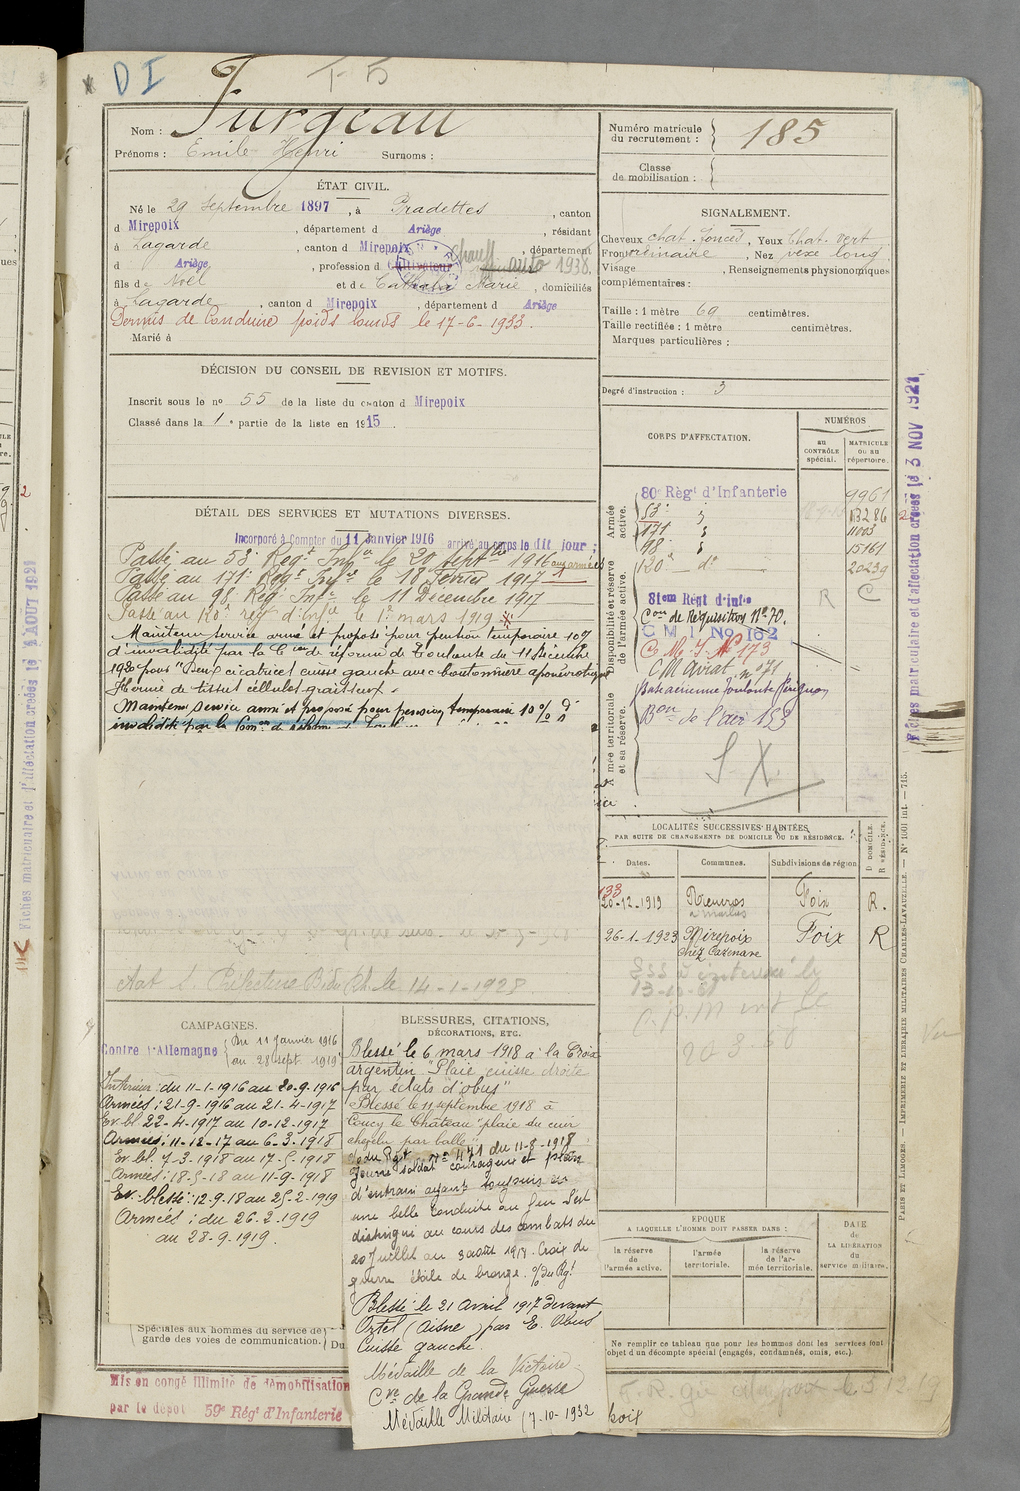 DI
T 5
Nom : Furgeau
Prénoms : Emile Henri Surnoms :
Numéro matricule du recrutement : 185
Classe de mobilisation :
ÉTAT CIVIL.
Né le 29 Septembre 1897, à Pradettes, canton
d Mirepoix, département d Ariège, résidant
à Lagarde, canton d Mirepoix, département
d Ariège, profession d Cultivateur Chauff. auto 1938.
fils de Noël et de Marie, domiciliés
à Lagarde, canton d Mirepoix, département d Ariège
Permis de Conduire poids lourds le 17-6-1933.
Marié à
SIGNALEMENT.
Cheveux chat. foncés, Yeux Chat. vert
Front ordinaire, Nez vexe long
Visage , Renseignements physionomiques
complémentaires :
Taille : 1 mètre 69 centimètres.
Taille rectifiée : 1 mètre centimètres.
Marques particulières :
Degré d'instruction : 3
DÉCISION DU CONSEIL DE REVISION ET MOTIFS.
Inscrit sous le nº 55 de la liste du canton d Mirepoix
Classé dans la 1e partie de la liste en 1915.
CORPS D'AFFECTATION.
NUMÉROS
AU CONTRÔLE spécial.
MATRICULE OU AU répertoire.
Armée active.
80e Régt d'Infanterie 9961
53e " 13286
171 " 11003
98 " 15161
120e do 20239
Disponibilité et réserve de l'armée active.
81em Régt d'infie R C
Con de Requisition Nº 70.
C M I No 162
C. M. I. No 173
CM Aviat nº 71
Bat aérienne Toulouse Perignon
Armée territoriale et sa réserve.
Bon de l'air 153
S X
DÉTAIL DES SERVICES ET MUTATIONS DIVERSES.
Incorporé à Compter du 11 Janvier 1916 arrivé au corps le dit jour ;
Passé au 53e Regt Infie le 20 Septbre 1916 aux armées
Passé au 171e Regt Infie le 18 Février 1917
Passé au 98 Reg Infie le 11 Décembre 1917
Passé au 120e reg d'Infie le 1er mars 1919
Maintenu service armé et proposé pour pention temporaire 10%
d'invalidité par la Con de réforme de Toulouse du 11 Décembre
1920 pour "Deux cicatrices cuisse gauche avec boutonnière aponévrotique
Hernie de tissut cellulo graisseux.
Maintenu service armé et proposé pour pension temporaire 10% d'
invalidité par la Com on de
Aut S. Préfecture le 14-1-1928.
LOCALITÉS SUCCESSIVES HABITÉES
PAR SUITE DE CHANGEMENTS DE DOMICILE OU DE RÉSIDENCE.
Dates. Communes. Subdivisions de région. D DOMICILE. R RÉSIDENCE.
133
20-12-1919 Foix R.
26-1-1923 Mirepoix Foix R
chez Cazenave
CAMPAGNES.
Contre l'Allemagne Du 11 Janvier 1916
au 28 sept. 1919
Intérieur : du 11-1-1916 au 20-9-1916
Armées : 21-9-1916 au 21-4-1917
Ev. bl. 22-4-1917 au 10-12-1917
Armées : 11-12-17 au 6-3-1918
Ev bl. 7-3-1918 au 17-5-1918
Armées : 18-5-18 au 11-9-1918
Ev. blessé : 12-9-18 au 25-2-1919
Armées : du 26-2-1919
au 28-9-1919.
Spéciales aux hommes du service de garde des voies de communication. Du
BLESSURES, CITATIONS,
DÉCORATIONS, ETC.
Blessé le 6 mars 1918 à la Croix
argentin "Plaie cuisse droite
par éclats d'obus"
Blessé le 11 septembre 1918 à
Coucy le Château "plaie du cuir
chevelu par balle"
O/ du Rgt nº 471 du 11-8-1918
Jeune soldat courageux et plein
d'entrain ayant toujours eu
une belle conduite au feu S'est
distingué au cours des combats du
20 Juillet au 3 août 1918. Croix de
guerre étoile de bronze. O/ du Rgt
Blessé le 21 Avril 1917 devant
Ostel (Aisne) par E. Obus
Cuisse gauche.
Médaille de la Victoire
Cve de la Grande Guerre
Médaille Militaire (7-10-1932
ÉPOQUE
A LAQUELLE L'HOMME DOIT PASSER DANS :
la réserve de l'armée active.
l'armée territoriale.
la réserve de l'armée territoriale.
DATE de LA LIBÉRATION du service militaire.
Ne remplir ce tableau que pour les hommes dont les services font
l'objet d'un décompte spécial (engagés, condamnés, omis, etc.).
Mis en congé illimité de démobilisation
par le dépôt 59e Régt d'Infanterie
Foix
Fiches matriculaire et d'affectation créées le 3 NOV 1921
Fiches matriculaire et d'affectation créées le 4 AOUT 1921
PARIS ET LIMOGES. — IMPRIMERIE ET LIBRAIRIE MILITAIRES CHARLES-LAVAUZELLE. — Nº 1001 int. — 715.